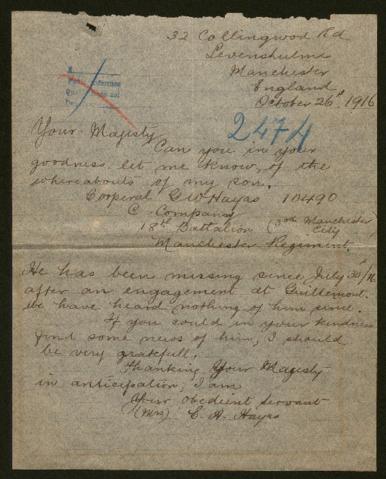 32 Collingwood Rd
Levenshulme
Manchester
England
October 26th, 1916
2474
Your Magesty
Can you in your
goodness let me know, of the
whereabouts of my son.
Corperal G W Hayes 10490
C. Company
18th Battalion (3rd Manchester
City)
Manchester Regiment.
He has been missing since July 30/16
after an engagement at Guillemont.
We have heard nothing of him since.
If you could in your kindness
find some news of him, I should
be very gratefull.
Thanking Your Magesty
in anticipation, I am
Your obedient servant
(Mrs) E. A. Hayes